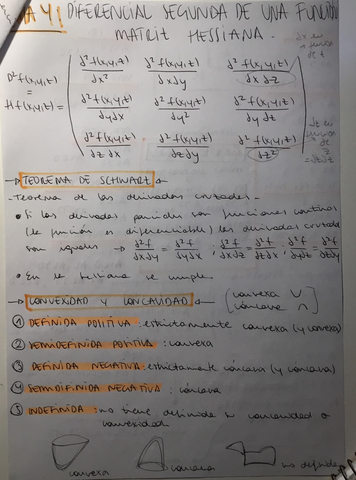 DIFERENCIAL SEGUNDA DE UNA FUNCIÓN
MATRIZ HESSIANA.
D²f(x,y,z) = Hf(x,y,z) =
∂²f(x,y,z)/∂x² ∂²f(x,y,z)/∂x∂y ∂²f(x,y,z)/∂x∂z
∂²f(x,y,z)/∂y∂x ∂²f(x,y,z)/∂y² ∂²f(x,y,z)/∂y∂z
∂²f(x,y,z)/∂z∂x ∂²f(x,y,z)/∂z∂y ∂²f(x,y,z)/∂z²
TEOREMA DE SCHWARTZ
Teorema de las derivadas cruzadas.
• Si las derivadas parciales son funciones continuas
(la función es diferenciable) las derivadas cruzadas
son iguales → ∂²f/∂x∂y = ∂²f/∂y∂x , ∂²f/∂x∂z = ∂²f/∂z∂x , ∂²f/∂y∂z = ∂²f/∂z∂y
• En la hessiana se cumple.
CONVEXIDAD Y CONCAVIDAD (convexa ∪
cóncava ∩)
① DEFINIDA POSITIVA: estrictamente convexa (y convexa)
② SEMIDEFINIDA POSITIVA: convexa
③ DEFINIDA NEGATIVA: estrictamente cóncava (y cóncava)
④ SEMIDIFINIDA NEGATIVA: cóncava
⑤ INDEFINIDA: no tiene definida su concavidad o
convexidad.
convexa cóncava no definida